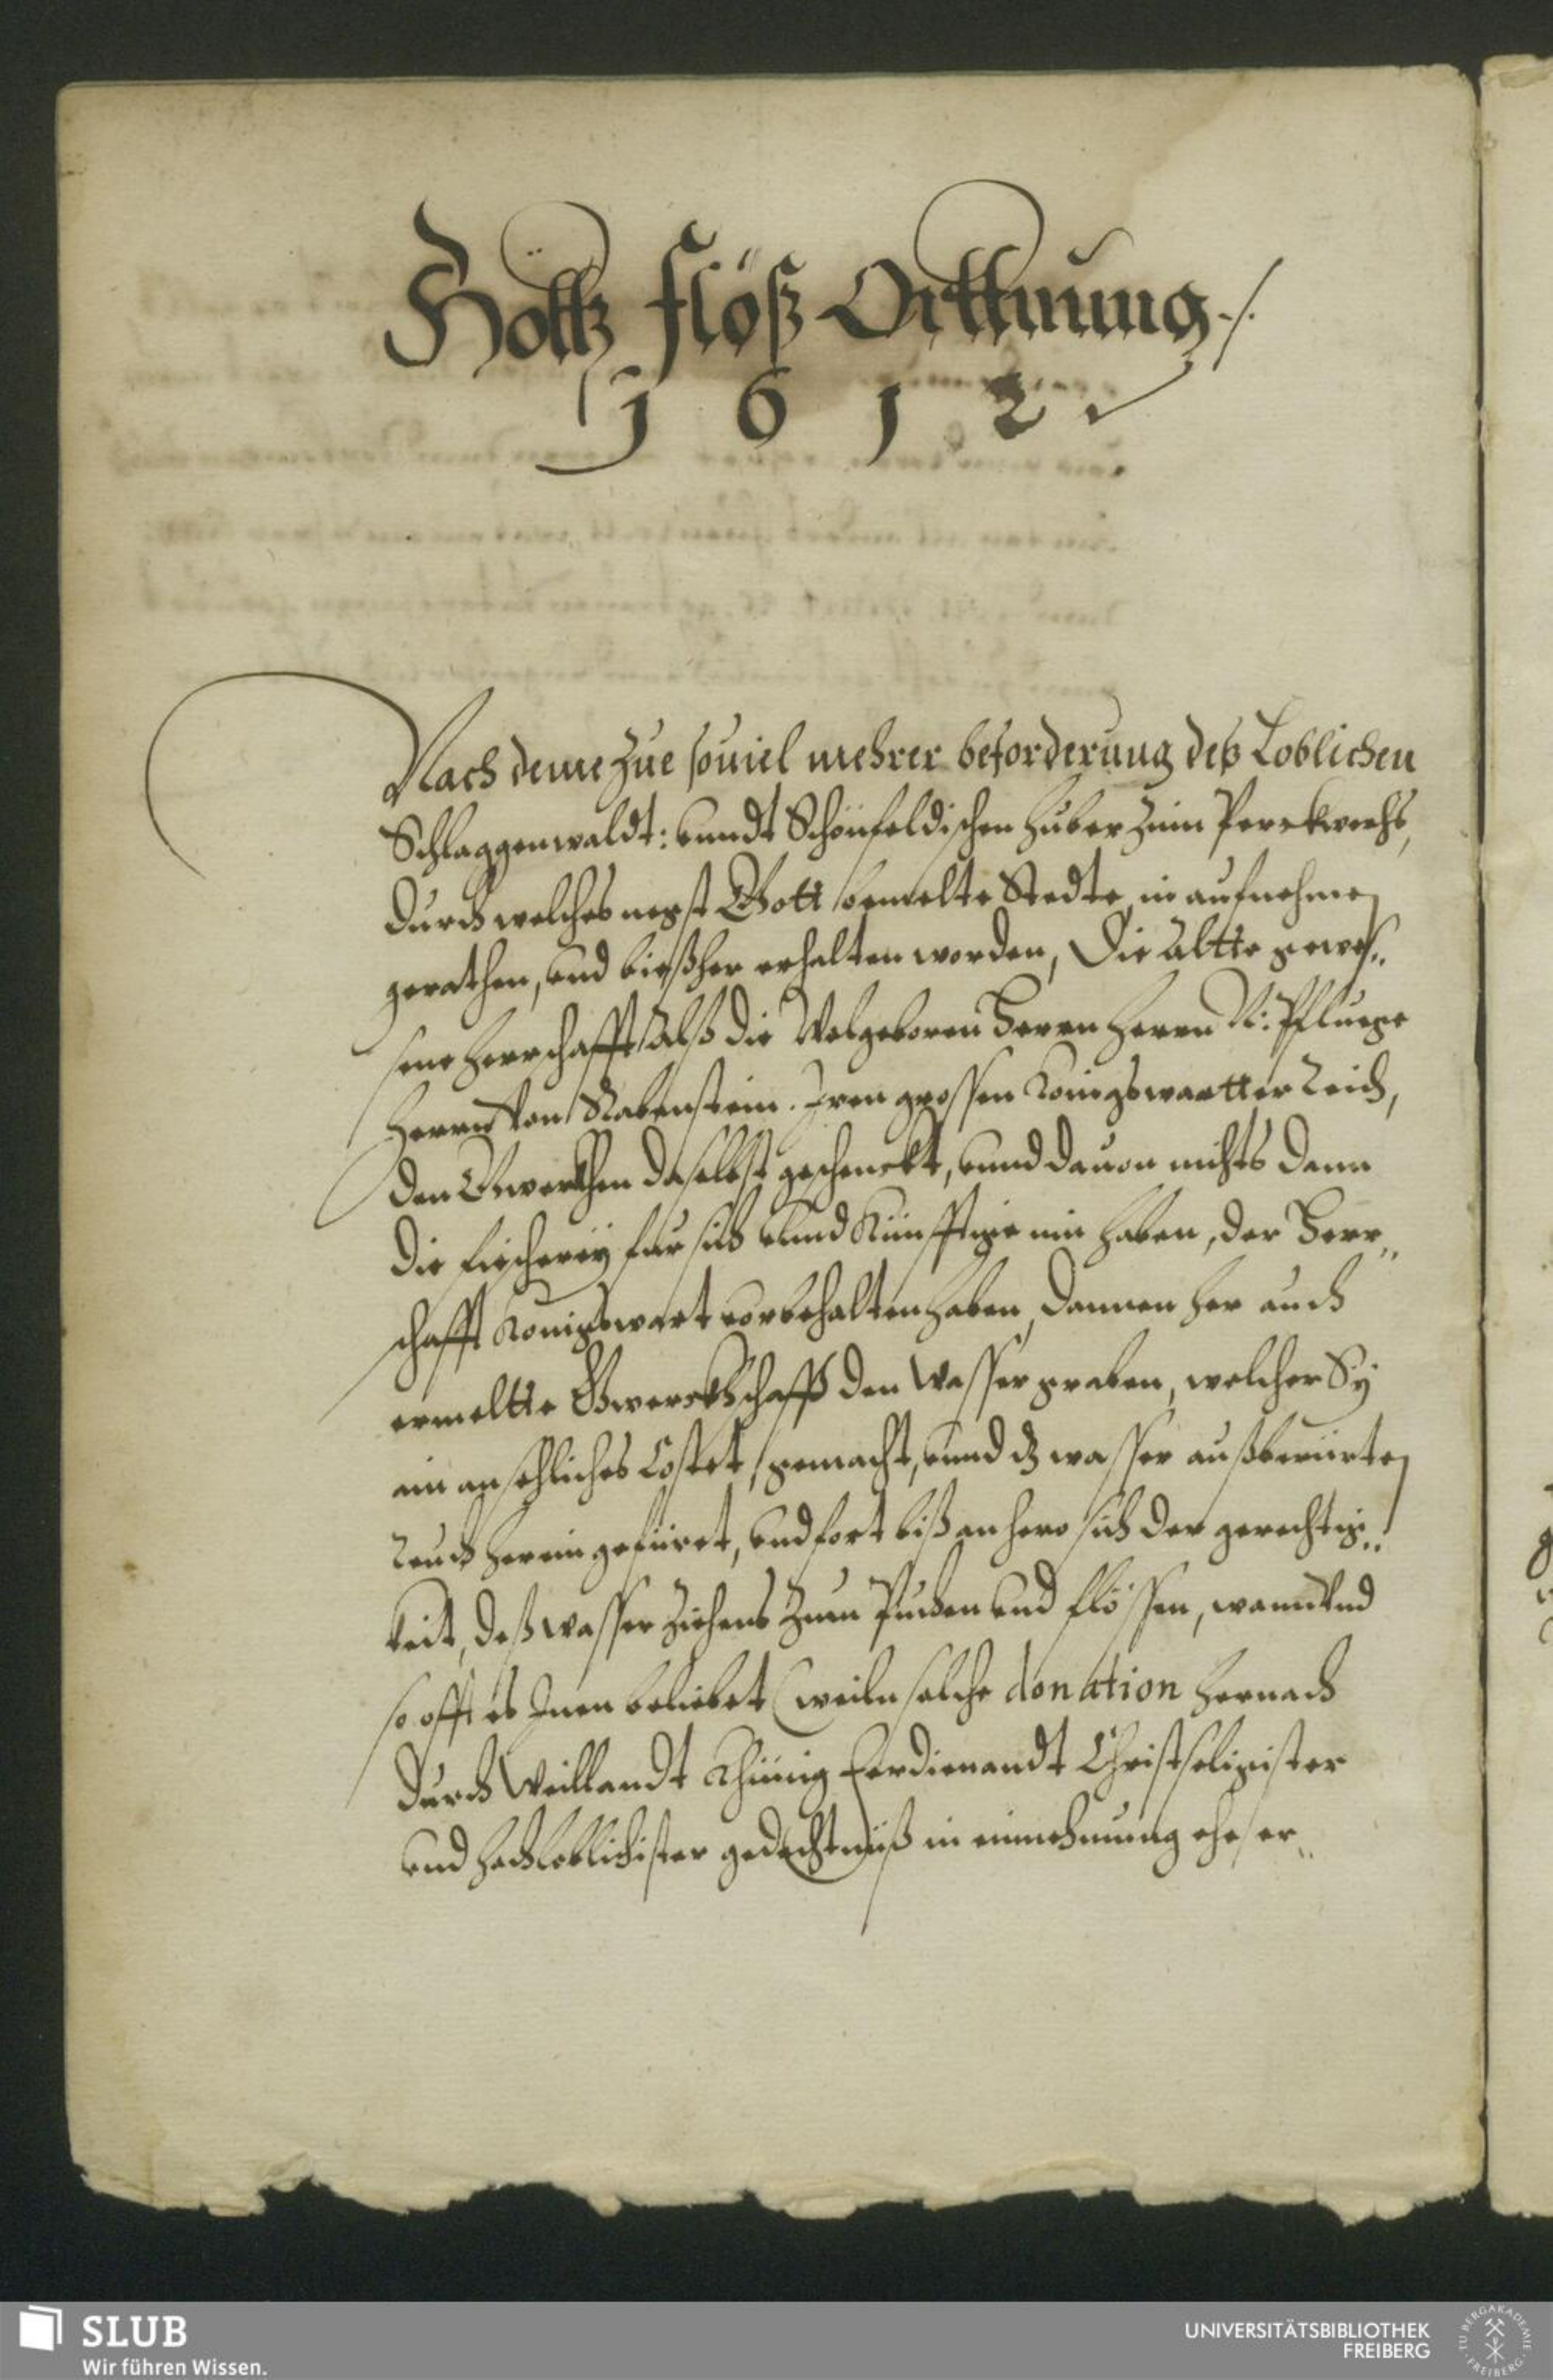 Höltz flöß Orttnung ./.
1612
Nach deme zue souiel mehrer beforderung deß Loblichen
Schlaggenwaldt: vnndt Schönfeldischen Zuberzinn Perckwerchs,
durch welches negst Gott bemelte Stedte, in aufnehmen
gerathen, vnd bießher erhalten worden, Die Altte gewes„
sene Herrschafft, Alß die Wolgeboren Herrn Herrn N: Pfluege
Herrn von Rabenstein. Iren grossen Königswartter Teich,
den Gwerckhen daselbst geschenckt, vnnd dauon nichts dann
die fischerey für sich vnnd Künfftige inn haben, der Herr„
schafft Königswart vorbehalten haben, dannen her auch
ermeltte Gwerckhschafft den Wassergraben, welcher Sy
ein ansehliches Costet, gemacht, vnnd dz wasser außberürten
Teuch herein gefüret, vnd fort biß anhero sich der gerechtig„
keit, deß wasser ziehens zum Puchen vnd flössen, wann vnd
so offt es Inen beliebet (weiln solche donation hernach
durch Weillandt Khünig Ferdienandt Christseligister
vnd hochloblichister gedechtnüß in einnehmung ehe er„
SLUB
Wir führen Wissen.
UNIVERSITÄTSBIBLIOTHEK
FREIBERG
TU BERGAKADEMIE
FREIBERG